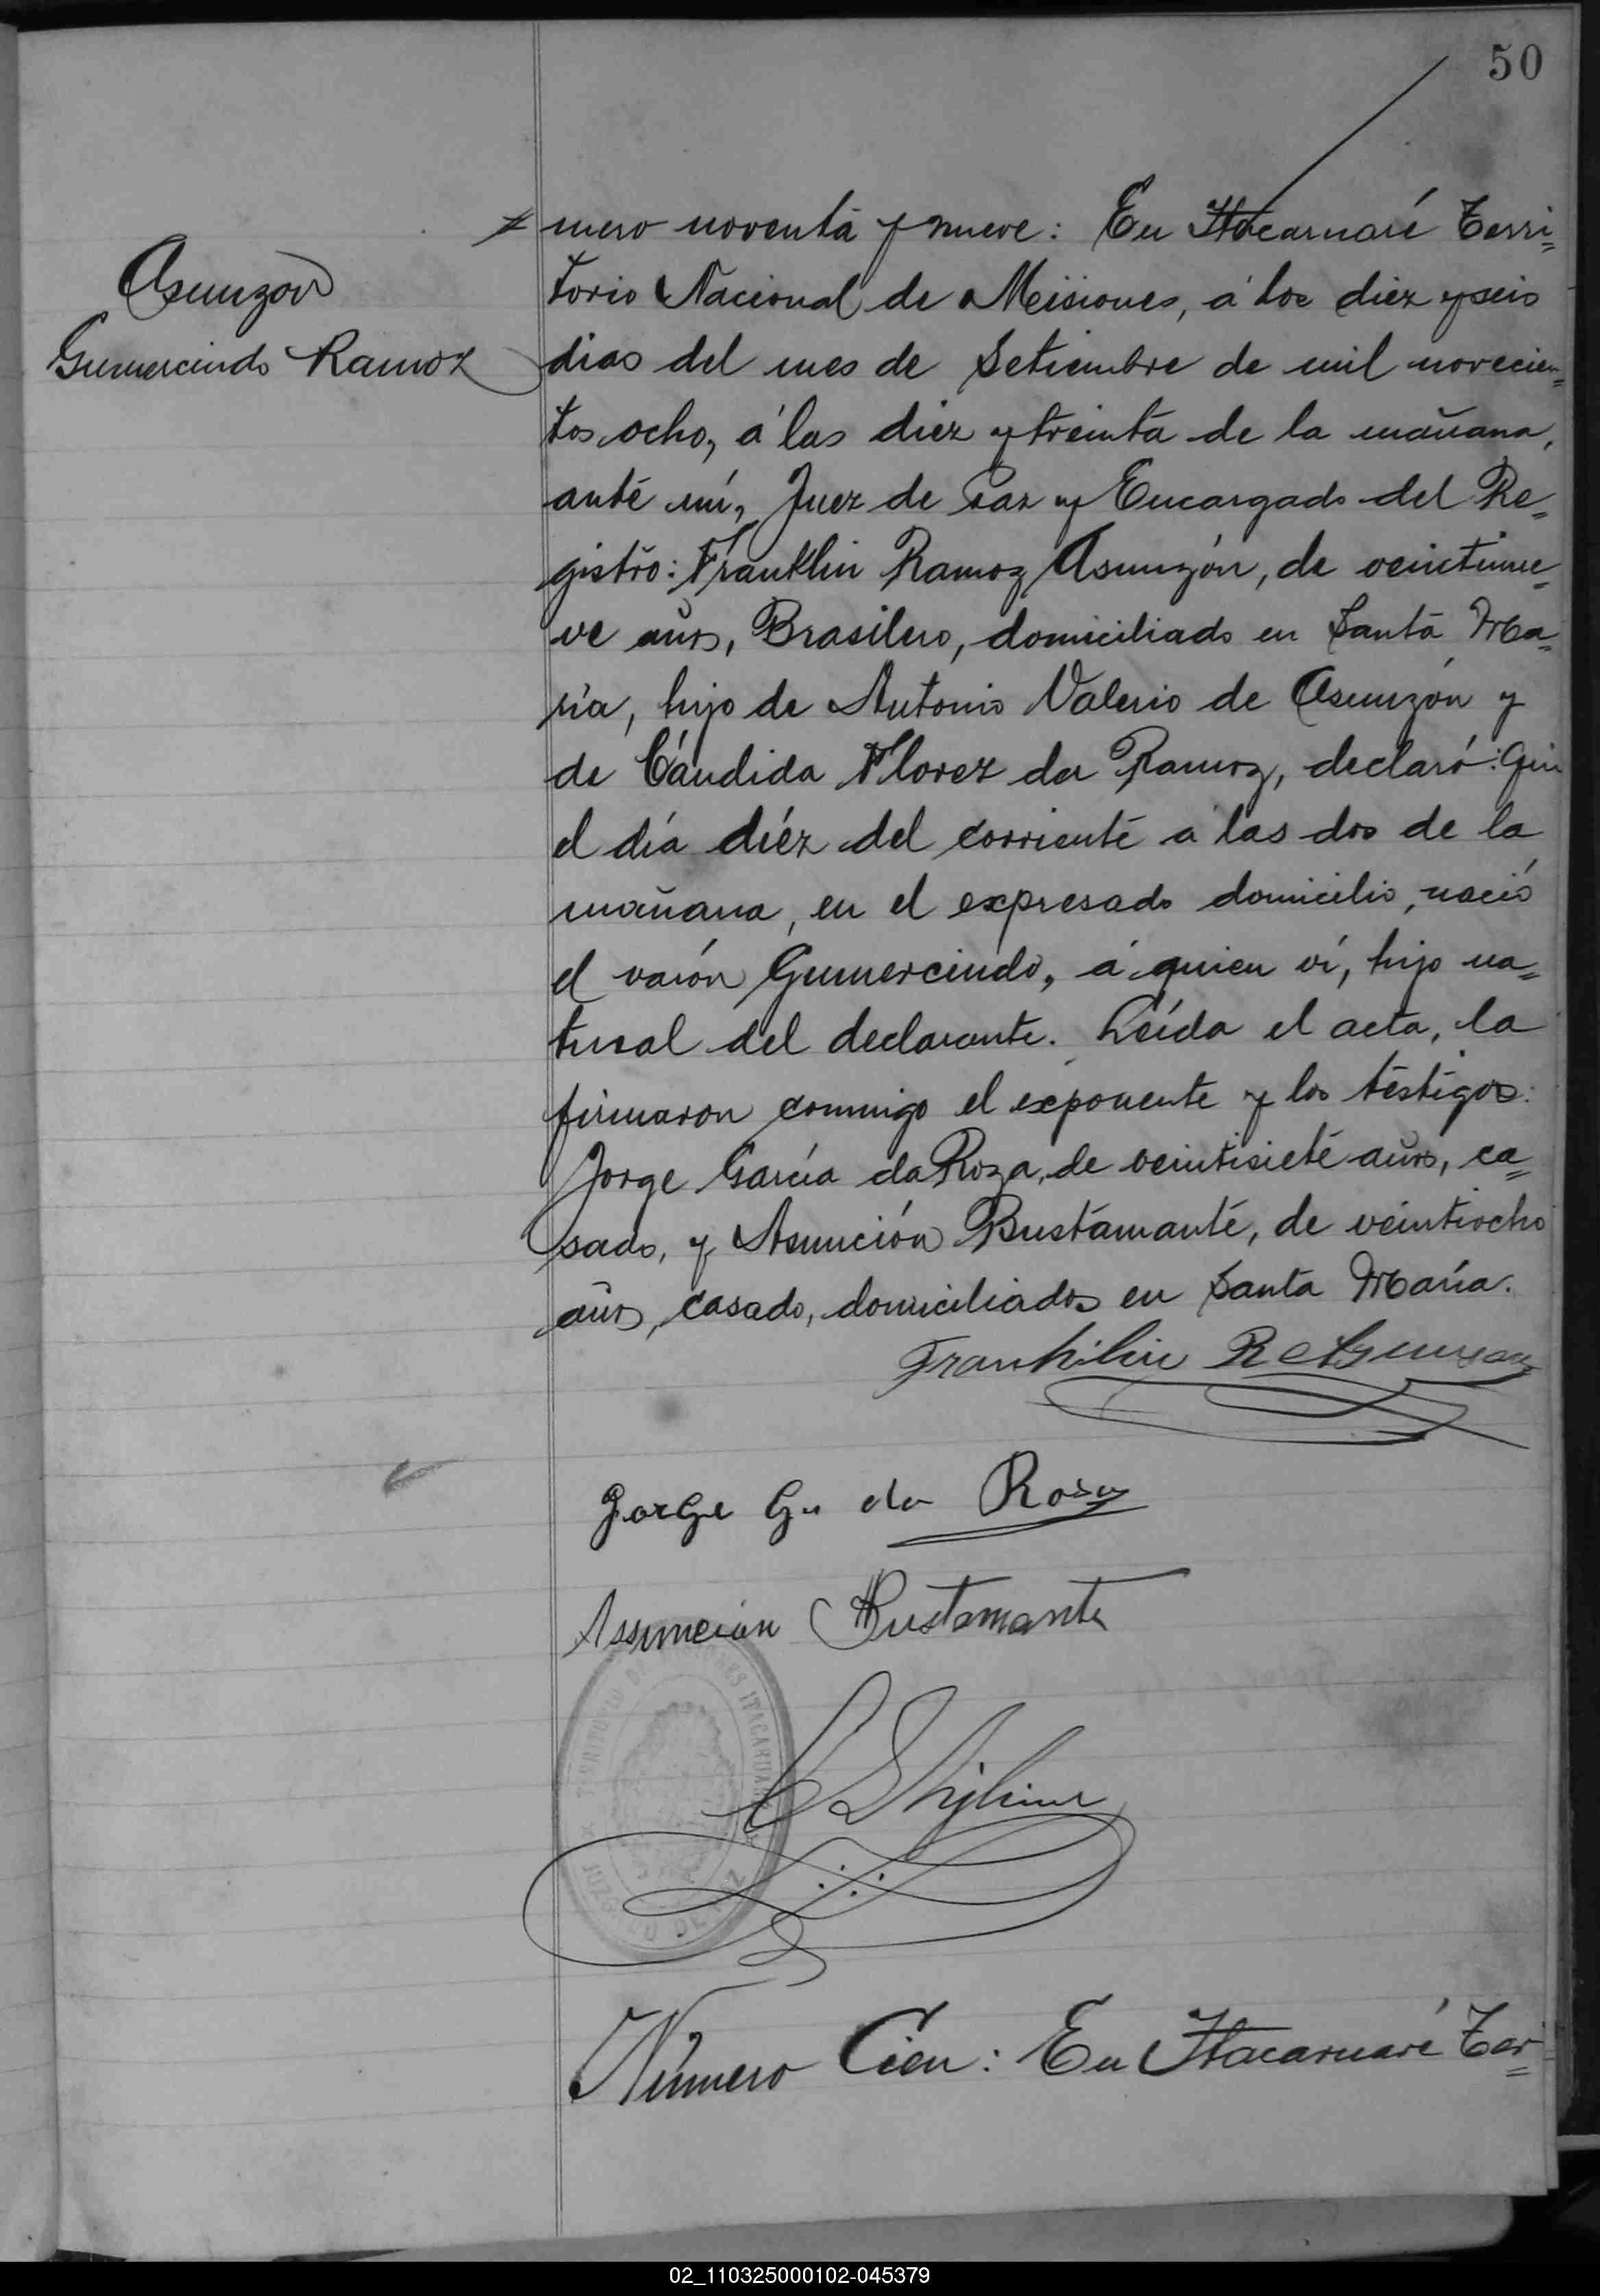 50
Asunzón
Gumercindo Ramoz
mero noventa y nueve: En Itacaruaré Terri=
torio Nacional de Misiones, á los diez y seis
dias del mes de Setiembre de mil novecien=
tos ocho, á las diez y treinta de la mañana,
ante mí, Juez de Paz y Encargado del Re=
gistro: Franklin Ramoz Asunzón, de veintinue=
ve años, Brasilero, domiciliado en Santa Ma=
ría, hijo de Antonio Valerio de Asunzón y
de Cándida Florez da Ramoz, declaró: Que
el día diéz del corriente a las dos de la
mañana, en el expresado domicilio, nació
el varón Gumercindo, á quien ví, hijo na=
tural del declarante. Leída el acta, la
firmaron conmigo el exponente y los testigos:
Jorge García da Roza, de veintisiete años, ca=
sado, y Asunción Bustamante, de veintiocho
años, casado, domiciliados en Santa María.
Frankilin R Asunzon
Jorge G. da Rosa
Assuncion Bustamante
TERRITORIO DE MISIONES ITACARUARÉ
JUZGADO DE PAZ
Número Cien: En Itacaruaré Ter=
02_110325000102-045379